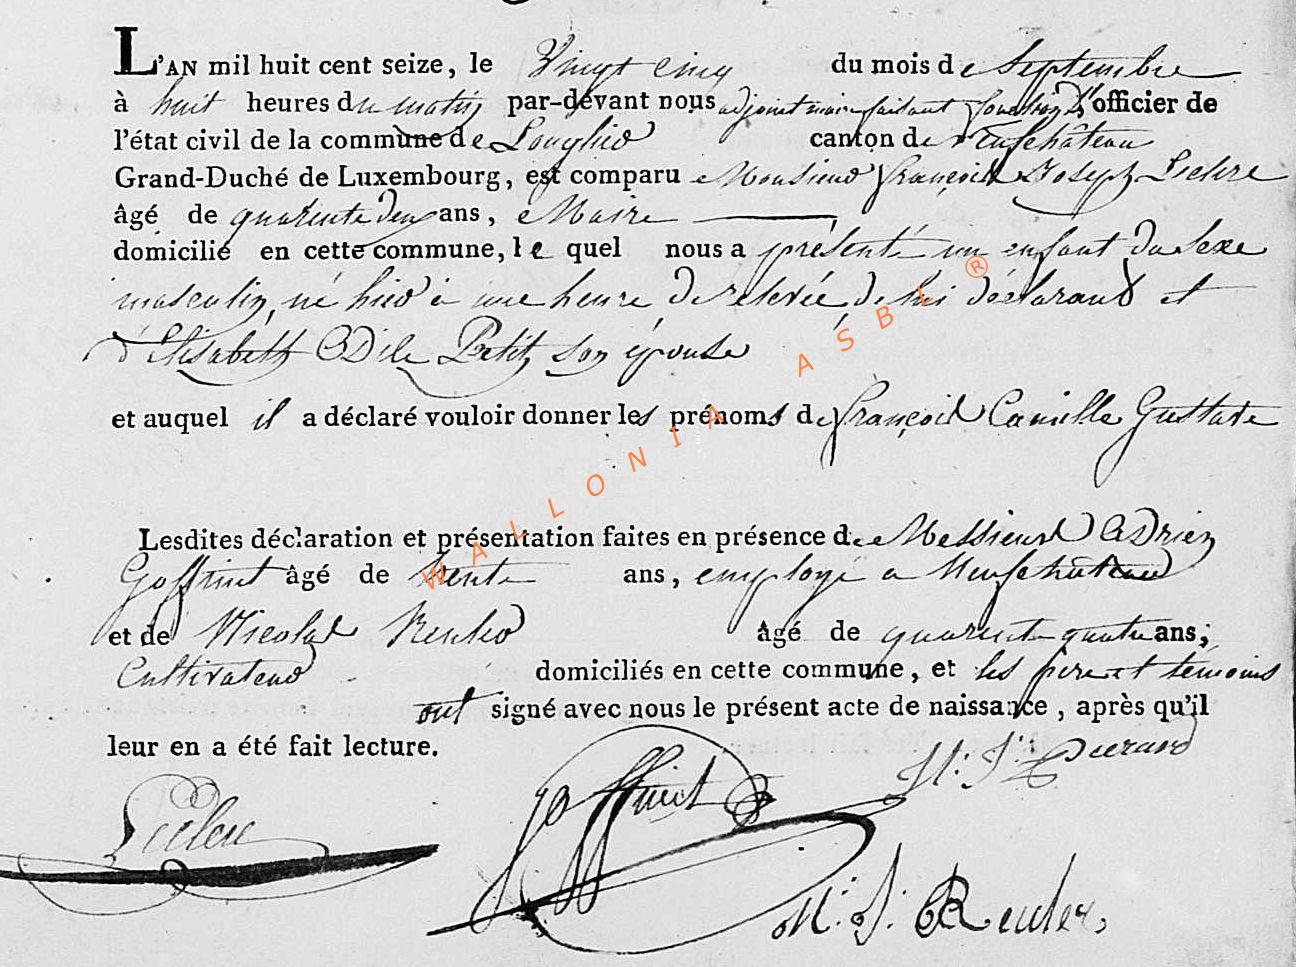 L'AN mil huit cent seize, le Vingt cinq du mois de Septembre
à huit heures du matin par-devant nous adjoint maire faisant fonction d'officier de
l'état civil de la commune de Longlier canton de Neufchâteau
Grand-Duché de Luxembourg, est comparu Monsieur François Joseph Leclere
âgé de quarente deux ans, Maire
domicilié en cette commune, le quel nous a présenté un enfant du Sexe
masculin, né hier à une heure de relevée, de lui déclarant et
d'Elisabeth Odile Petit, son épouse
et auquel il a déclaré vouloir donner les prénoms de François Camille Gustave
Lesdites déclaration et présentation faites en présence de Messieurs Adrien
Goffinet âgé de trente ans, employé a Neufchateau
et de Nicolas Reuler âgé de quarente quatre ans,
Cultivateur domiciliés en cette commune, et les pere et témoins
ont signé avec nous le présent acte de naissance, après qu'il
leur en a été fait lecture.
Leclere
Goffinet
N. J. Reuler
WALLONIA ASBL ®